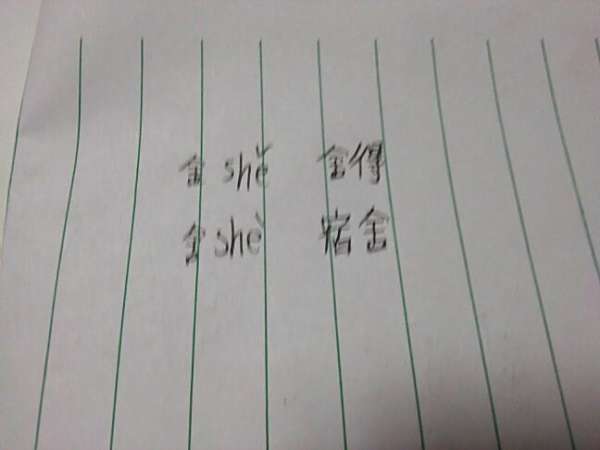 舍 shě 舍得
舍 shè 宿舍